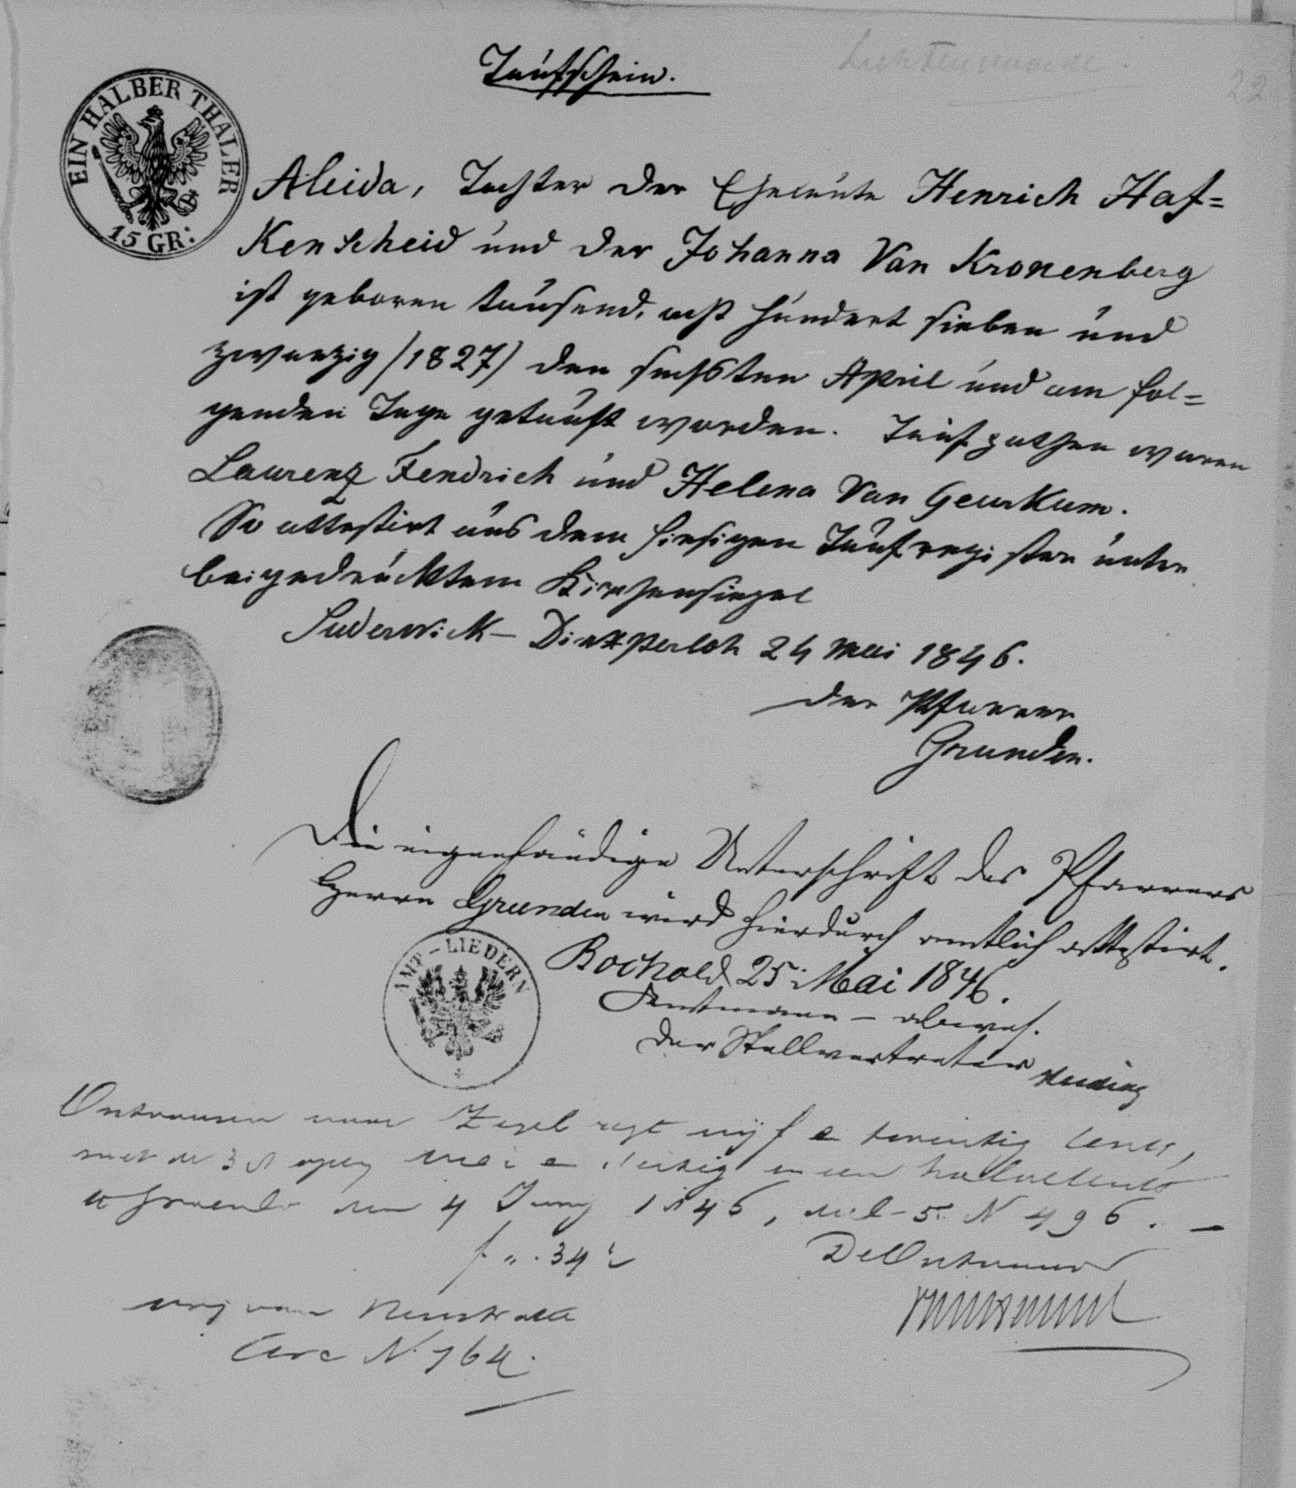 Taufschein.
22
EIN HALBER THALER
15 GR:
Aleida, Tochter der Eheleute Henrich Haf=
Kenscheid und der Johanna Van Kronenberg
ist geboren tausend, acht hundert sieben und
zwanzig /1827/ den sechsten April und am fol=
genden Tage getauft worden. Taufpathen waren
Laurenz Fendrich und Helena Van Geurkum.
So attestirt aus dem hiesigen Taufregister unter
beigedrücktem Kirchensiegel
Suderwick - Dinxperloh 24 Mai 1846.
Der Pfarrer
Grunden.
Die eigenhändige Unterschrift des Pfarrers
Herrn Grunden wird hierdurch amtlich attestirt.
AMT-LIEDERN
Bocholt 25 Mai 1846.
Amtmann - abwes.
Der Stellvertreter
Ontvangen voor Zegel regt vijf en twintig Cents,
met de 38 opc vier en dertig en een halve Cents
den 4 Juny 1846, deel 5 N 496. -
f „. 34 ½
De Ontvanger
N. 764.